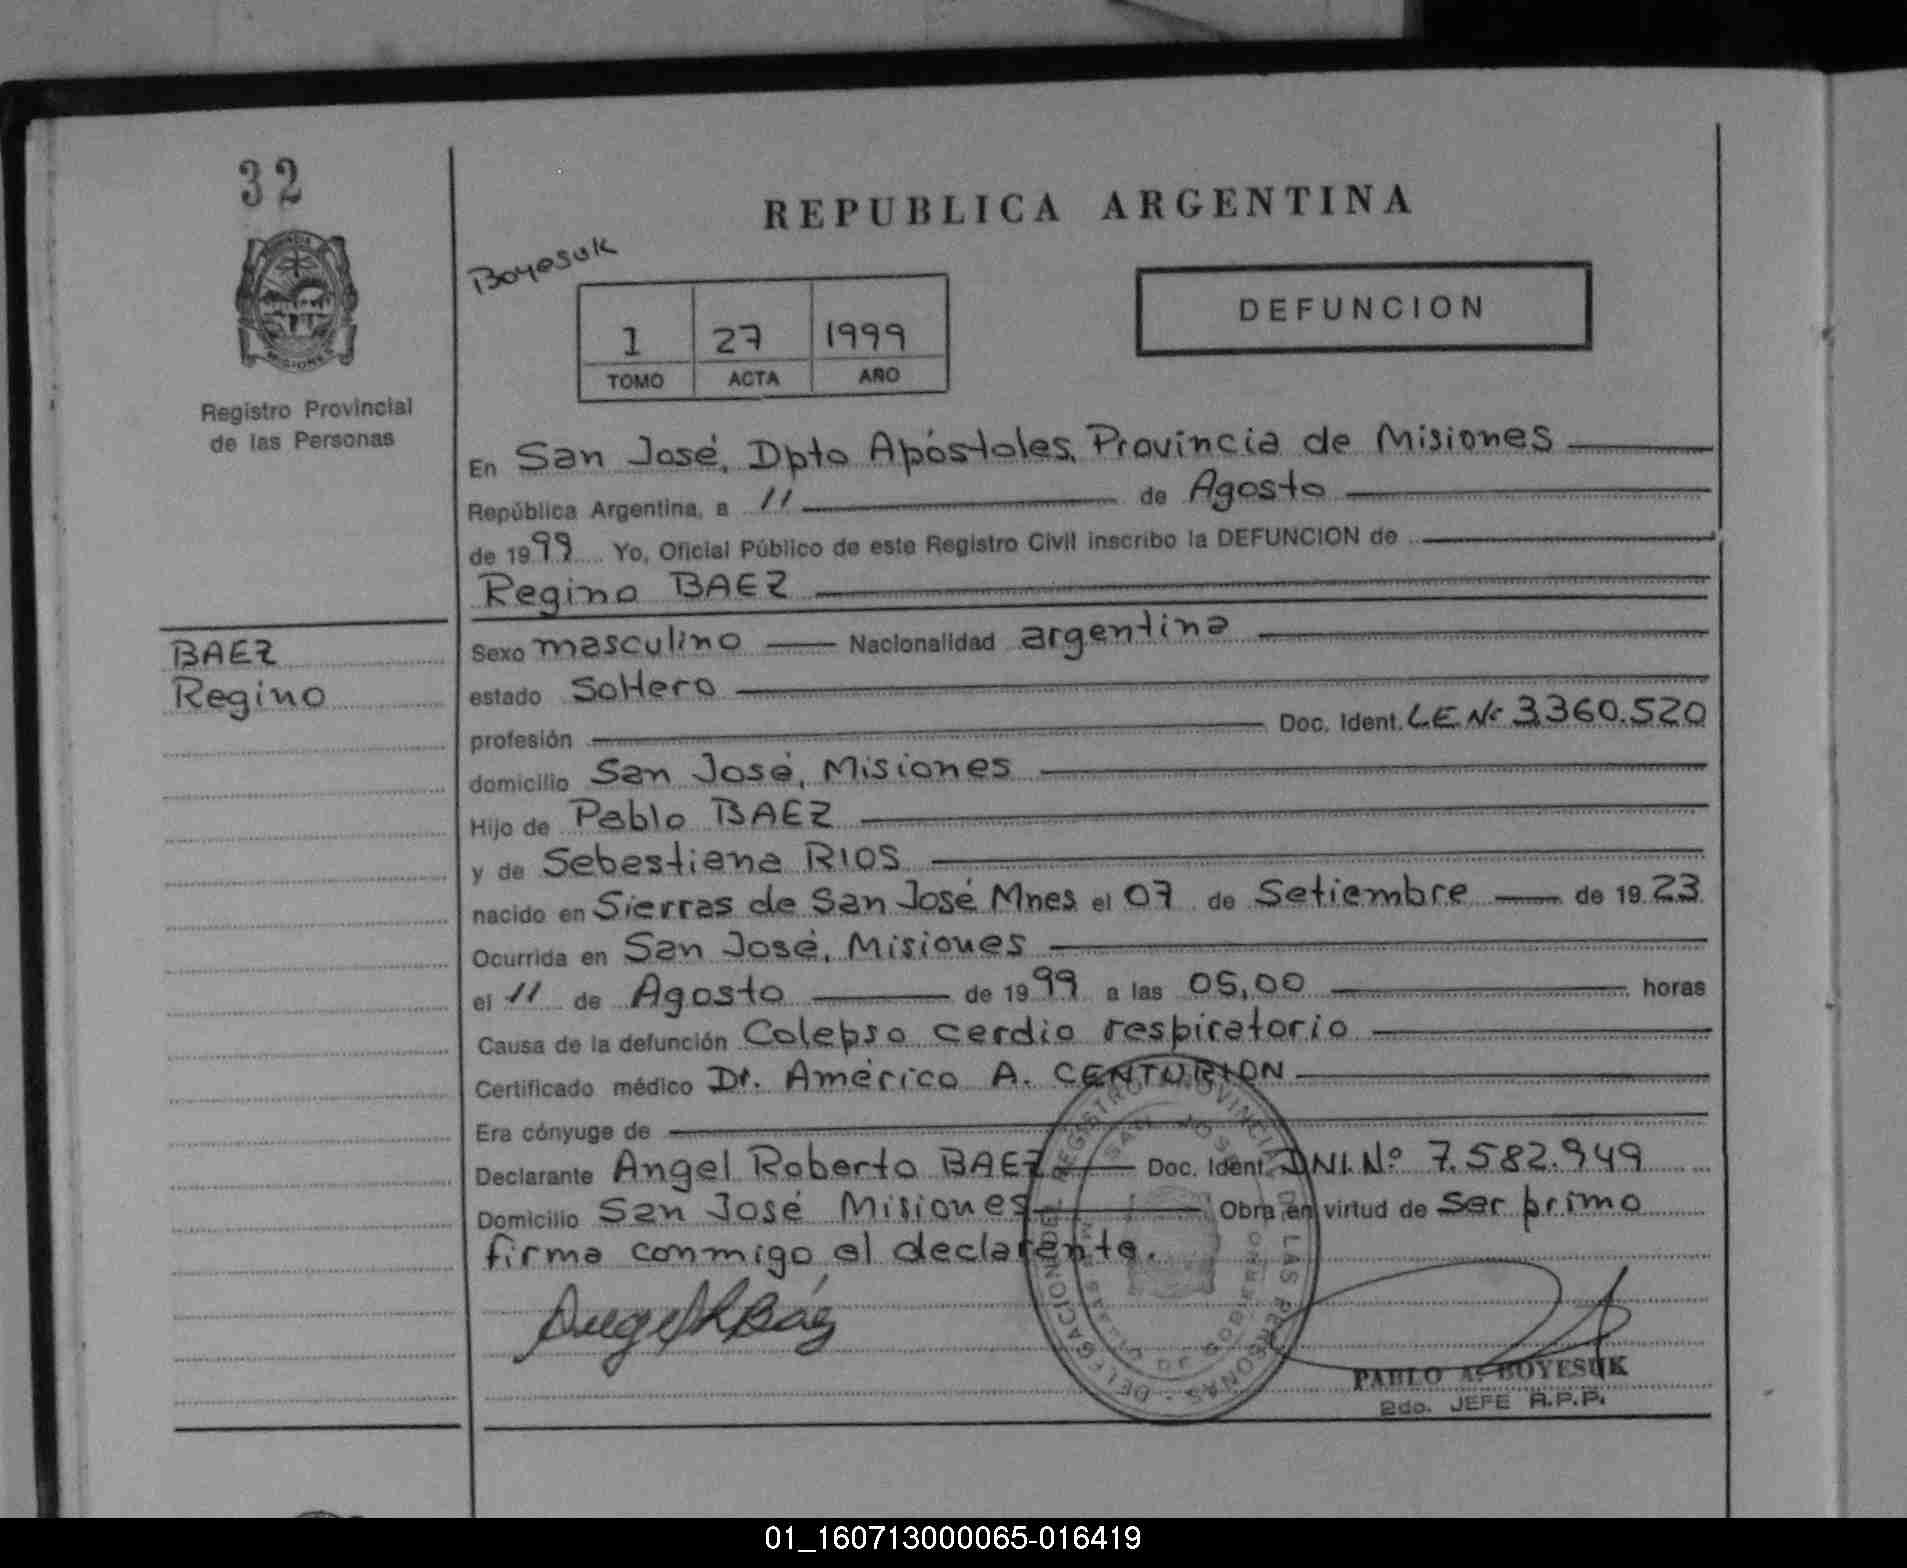 32
REPUBLICA ARGENTINA
Boyesuk
DEFUNCION
1 27 1999
TOMO ACTA AÑO
Registro Provincial
de las Personas
En San José, Dpto Apóstoles, Provincia de Misiones
República Argentina, a 11 de Agosto
de 1999 Yo, Oficial Público de este Registro Civil inscribo la DEFUNCION de
Regino BAEZ
BAEZ
Regino
Sexo masculino Nacionalidad argentina
estado Soltero
profesión Doc. Ident. L.E. Nº 3.360.520
domicilio San José, Misiones
Hijo de Pablo BAEZ
y de Sebastiana RIOS
nacido en Sierras de San José Mnes el 07 de Setiembre de 1923
Ocurrida en San José, Misiones
el 11 de Agosto de 1999 a las 05,00 horas
Causa de la defunción Colapso cardio respiratorio
Certificado médico Dr. Américo A. CENTURION
Era cónyuge de
Declarante Angel Roberto BAEZ Doc. Ident. DNI. Nº 7.582.949
Domicilio San José Misiones Obra en virtud de ser primo
firma conmigo el declarante.
Angel R Báez
REGISTRO PROVINCIAL DE LAS PERSONAS - DELEGACION
SAN JOSE
PABLO A. BOYESUK
2do. JEFE R.P.P.
01_160713000065-016419